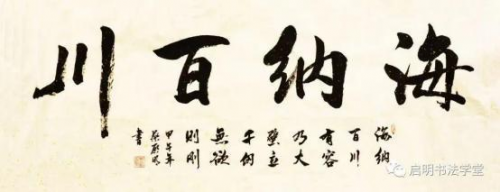 海納百川
海納
百川
有容
乃大
壁立
千仞
無欲
則剛
甲午年
書
启明书法学堂